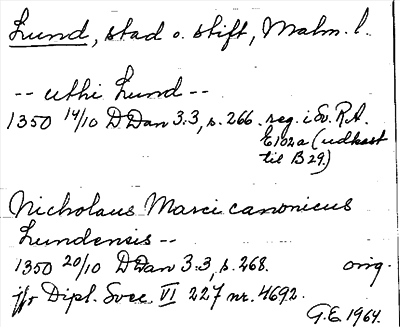 Lund, stad o. stift, Malm. l.
-- uthi Lund --
1350 14/10 D Dan 3:3, s. 266. reg. i Sv. R.A.
E 102a (udkast
til B 29.)
Nicholaus Marci canonicus
Lundensis --
1350 20/10 D Dan 3:3, s. 268. orig.
jfr Dipl. Svec. VI 227 nr. 4692.
G.E 1964.